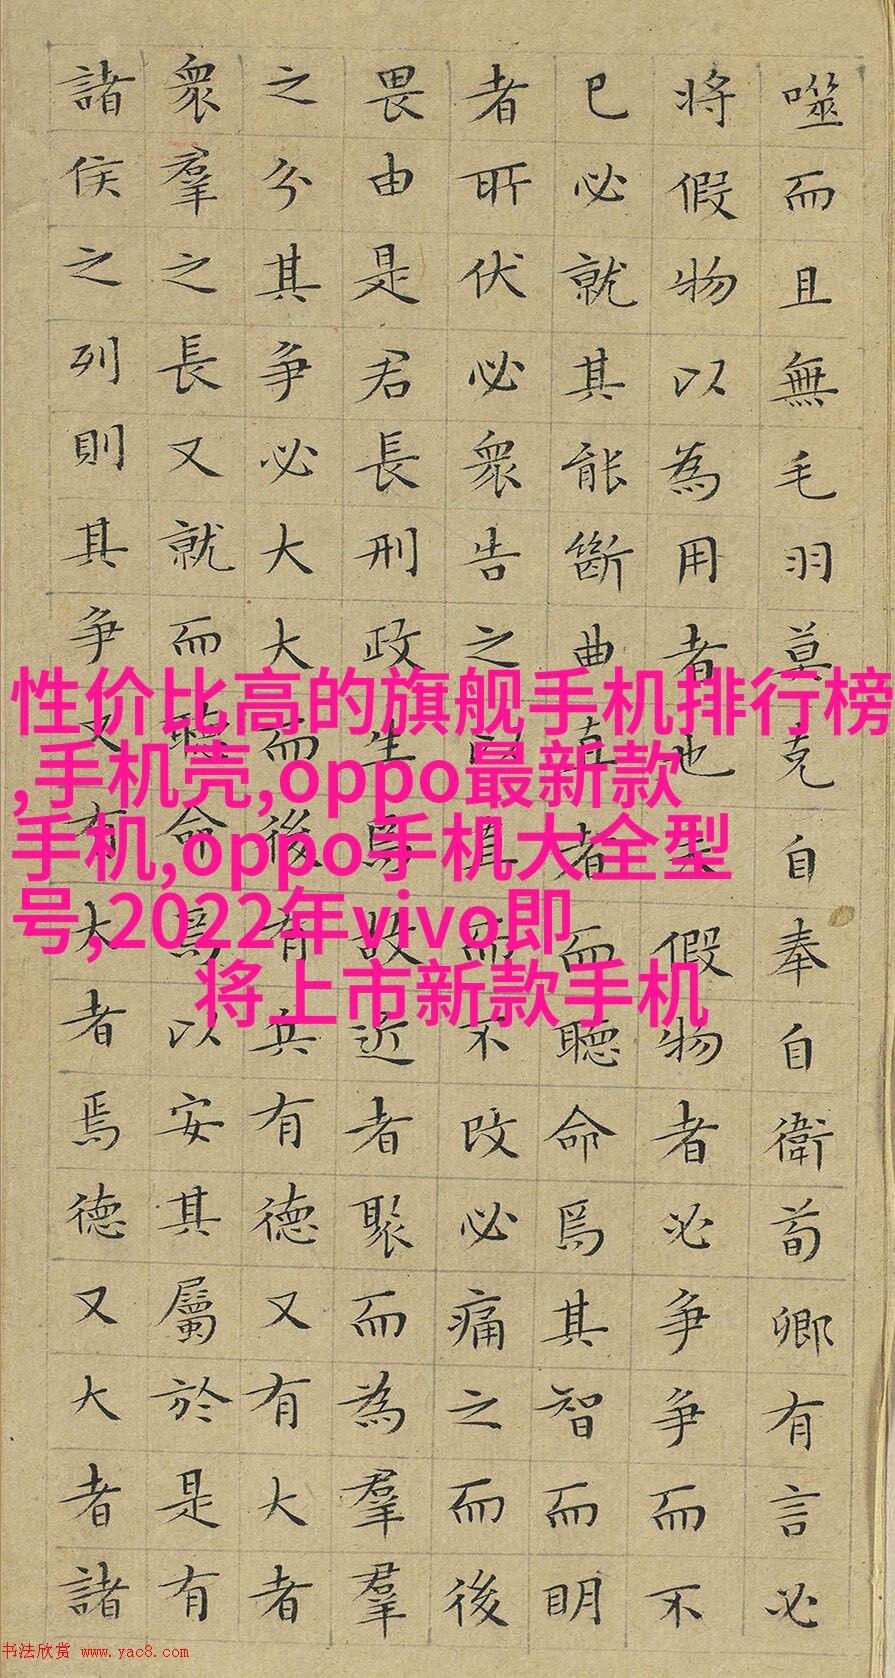 噬而且無毛羽莫克自奉自衛荀卿有言必
将假物以為用者也夫假物者必争争而不
已必就其能斷曲直者而聽命焉其智而明
者所伏必衆告之以直而不改必痛之而後
畏由是君長刑政生焉故近者聚而為羣羣
之分其争必大大而後有兵有德又有大者
衆羣之長又就而聽命焉以安其屬於是有
諸侯之列則其争又有大者焉德又大者諸
性价比高的旗舰手机排行榜
,手机壳,oppo最新款
手机,oppo手机大全型
号,2022年vivo即
将上市新款手机
书法欣赏 www.yac8.com